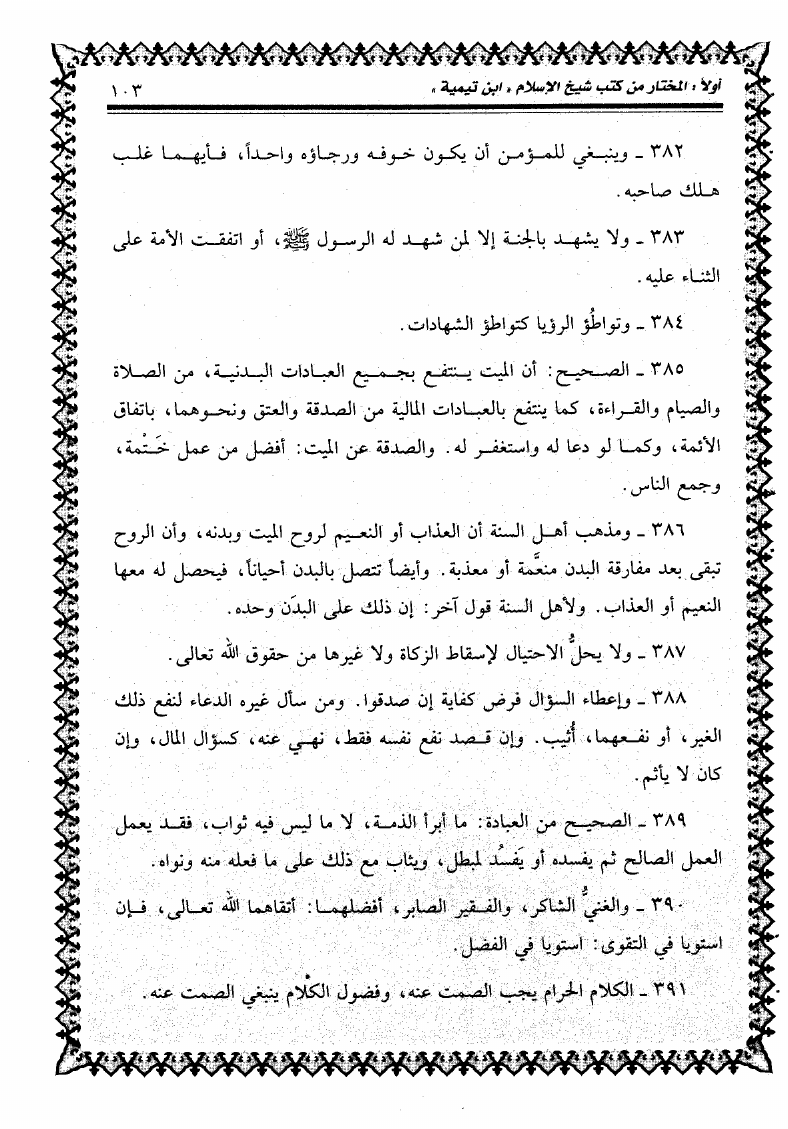 أولاً : المختار من كتب شيخ الإسلام « ابن تيمية » ١٠٣
٣٨٢ ـ وينبغي للمؤمن أن يكون خوفه ورجاؤه واحداً، فأيهما غلب
هلك صاحبه.
٣٨٣ ـ ولا يشهد بالجنة إلا لمن شهد له الرسول ﷺ، أو اتفقت الأمة على
الثناء عليه.
٣٨٤ ـ وتواطُؤ الرؤيا كتواطؤ الشهادات.
٣٨٥ ـ الصحيح: أن الميت ينتفع بجميع العبادات البدنية، من الصلاة
والصيام والقراءة، كما ينتفع بالعبادات المالية من الصدقة والعتق ونحوهما، باتفاق
الأئمة، وكما لو دعا له واستغفر له. والصدقة عن الميت: أفضل من عمل خَتْمة،
وجمع الناس.
٣٨٦ ـ ومذهب أهل السنة أن العذاب أو النعيم لروح الميت وبدنه، وأن الروح
تبقى بعد مفارقة البدن منعَّمة أو معذبة. وأيضاً تتصل بالبدن أحياناً، فيحصل له معها
النعيم أو العذاب. ولأهل السنة قول آخر: إن ذلك على البدَن وحده.
٣٨٧ ـ ولا يحلُّ الاحتيال لإسقاط الزكاة ولا غيرها من حقوق الله تعالى.
٣٨٨ ـ وإعطاء السؤال فرض كفاية إن صدقوا. ومن سأل غيره الدعاء لنفع ذلك
الغير، أو نفعهما، أُثيب. وإن قصد نفع نفسه فقط، نهي عنه، كسؤال المال، وإن
كان لا يأثم.
٣٨٩ ـ الصحيح من العبادة: ما أبرأ الذمة، لا ما ليس فيه ثواب، فقد يعمل
العمل الصالح ثم يفسده أو يَفسُد لمبطل، ويثاب مع ذلك على ما فعله منه ونواه.
٣٩٠ ـ والغنيُّ الشاكر، والفقير الصابر، أفضلهما: أتقاهما لله تعالى، فإن
استويا في التقوى: استويا في الفضل.
٣٩١ ـ الكلام الحرام يجب الصمت عنه، وفضول الكلام ينبغي الصمت عنه.